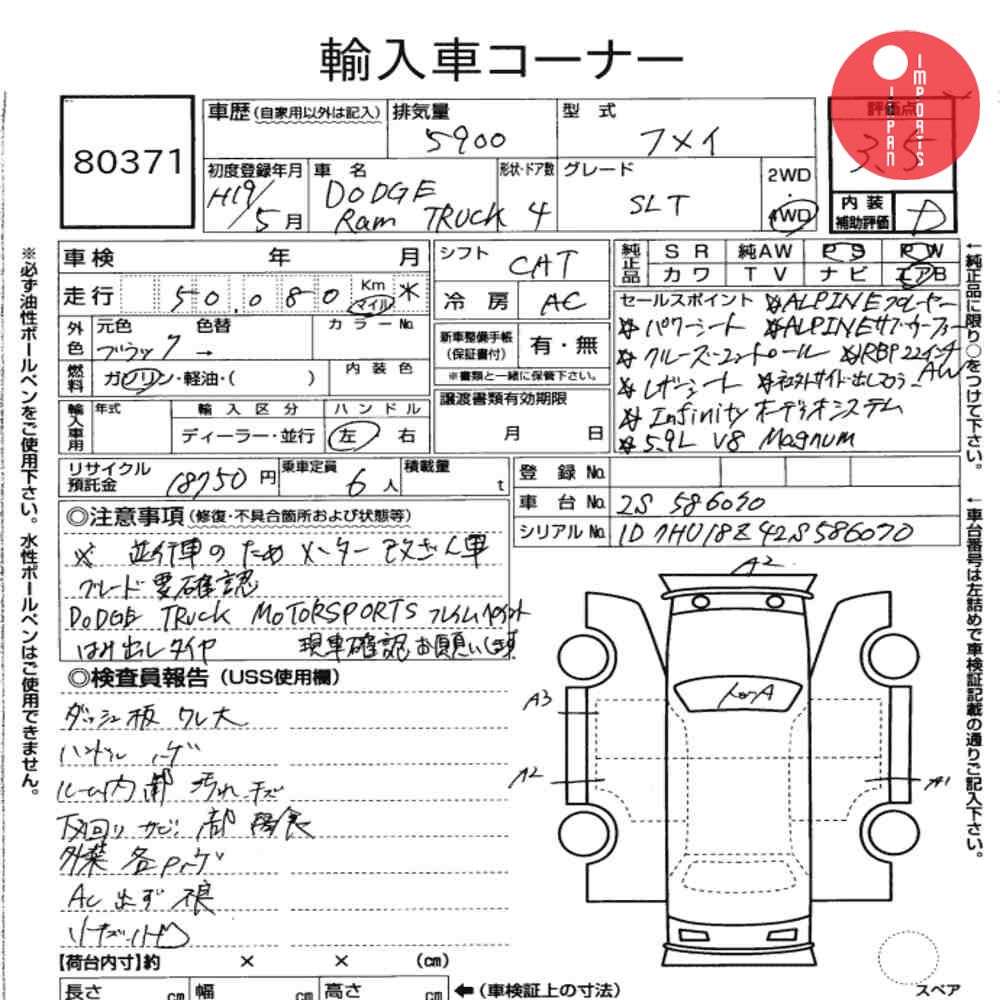 輸入車コーナー
IMPORTS JAPAN
80371
車歴(自家用以外は記入)
排気量
5900
型 式
フメイ
評価点
3.5
初度登録年月
H19/5月
車 名
DODGE
Ram TRUCK
形状・ドア数
4
グレード
SLT
2WD
・
4WD
内 装
補助評価
D
車検 年 月
走行 50,080 Km マイル ※
外色
元色 色替
ブラック →
カラーNo.
燃料
ガソリン・軽油・( )
内 装 色
輸入車用
年式
輸 入 区 分
ディーラー・並行
ハ ン ド ル
左 右
シフト
CAT
冷 房
AC
新車整備手帳
(保証書付)
有・無
※書類と一緒に保管下さい。
譲渡書類有効期限
月 日
純正品
S R 純AW P S P W
カ ワ T V ナ ビ エアB
セールスポイント ※ALPINEプレーヤー
※パワーシート ※ALPINEサブウーファー
※クルーズコントロール ※RBP22インチAW
※レザーシート ※社外サイド出しマフラー
※Infinityオーディオシステム
※5.9L V8 Magnum
リサイクル
預託金
18750 円
乗車定員
6 人
積載量
t
登 録 No.
車 台 No. 2S 586070
シリアル No. 1D7HU18Z42S586070
◎注意事項(修復・不具合箇所および状態等)
※ 並行車のためメーター改ざん車
グレード要確認
DODGE TRUCK MOTORSPORTS フレイムペイント
はみ出しタイヤ 現車確認お願いします
◎検査員報告(USS使用欄)
ダッシュ板 ワレ大
ハンドル ハゲ
ルーム内 部 汚れ キズ
下回り サビ 部 腐食
外装 各Pハゲ
AC 出ず 不良
A2
トップA
A3
A2
A1
【荷台内寸】約 × × (cm)
長さ cm 幅 cm 高さ cm
←(車検証上の寸法)
スペア
※必ず油性ボールペンをご使用下さい。水性ボールペンはご使用できません。
←純正品に限り○をつけて下さい。
←車台番号は左詰めで車検証記載の通りご記入下さい。